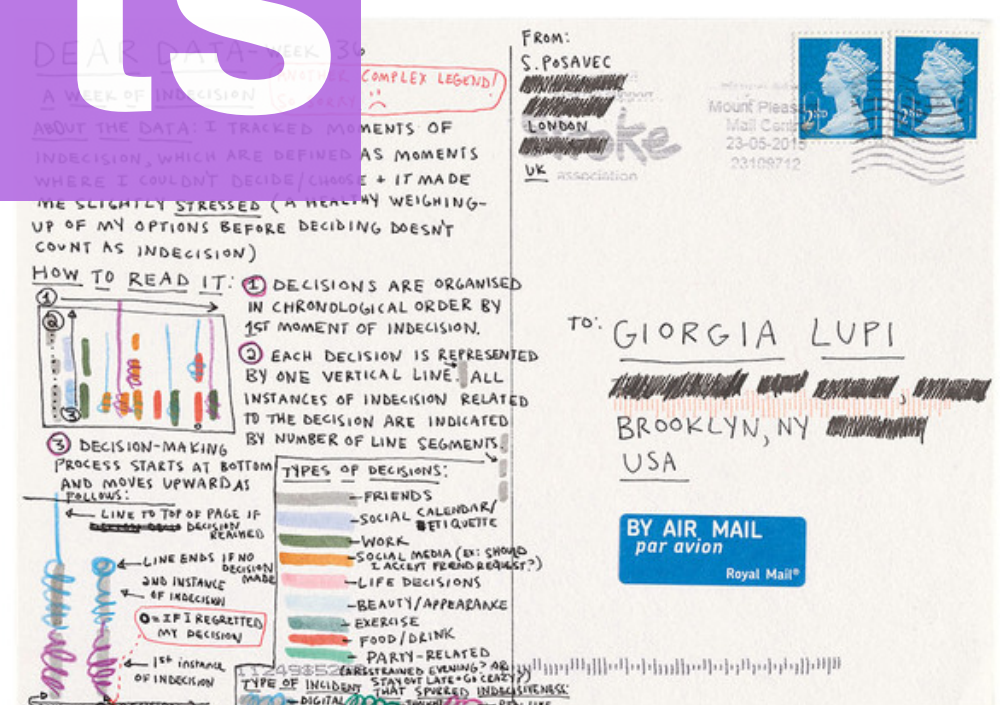 is
DEAR DATA - WEEK 36
ANOTHER COMPLEX LEGEND!
A WEEK OF INDECISION
ABOUT THE DATA: I TRACKED MOMENTS OF
INDECISION, WHICH ARE DEFINED AS MOMENTS
WHERE I COULDN'T DECIDE/CHOOSE + IT MADE
ME SLIGHTLY STRESSED (A HEALTHY WEIGHING-
UP OF MY OPTIONS BEFORE DECIDING DOESN'T
COUNT AS INDECISION)
HOW TO READ IT:
1 DECISIONS ARE ORGANISED
IN CHRONOLOGICAL ORDER BY
1ST MOMENT OF INDECISION.
2 EACH DECISION IS REPRESENTED
BY ONE VERTICAL LINE. ALL
INSTANCES OF INDECISION RELATED
TO THE DECISION ARE INDICATED
BY NUMBER OF LINE SEGMENTS.
1
2
3
3 DECISION-MAKING
PROCESS STARTS AT BOTTOM
AND MOVES UPWARD AS
FOLLOWS:
LINE TO TOP OF PAGE IF
DECISION
REACHED
LINE ENDS IF NO
DECISION
MADE
2ND INSTANCE
OF INDECISION
O = IF I REGRETTED
MY DECISION
1st instance
OF INDECISION
TYPES OF DECISIONS:
FRIENDS
SOCIAL CALENDAR/
ETIQUETTE
WORK
SOCIAL MEDIA (EX: SHOULD
I ACCEPT FRIEND REQUEST?)
LIFE DECISIONS
BEAUTY/APPEARANCE
EXERCISE
FOOD/DRINK
PARTY-RELATED
(RESTRAINED EVENING? OR
STAY OUT LATE + GO CRAZY?)
TYPE OF INCIDENT
THAT SPURRED INDECISIVENESS:
DIGITAL
FROM:
S. POSAVEC
LONDON
UK
association
Mount Pleasant
Mail Centre
23-05-2015
23109712
2ND
2ND
TO:
GIORGIA LUPI
BROOKLYN, NY
USA
BY AIR MAIL
par avion
Royal Mail®